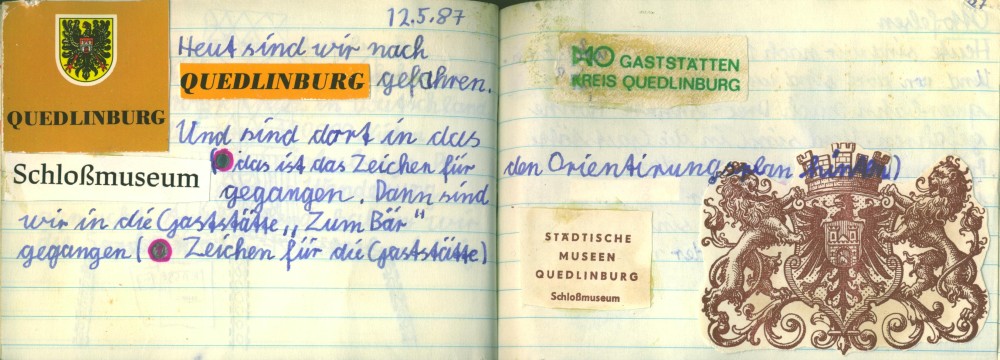 12.5.87
Heut sind wir nach
QUEDLINBURG gefahren.
QUEDLINBURG
Und sind dort in das
Schloßmuseum (das ist das Zeichen für den Orientirungsplan hinten)
gegangen. Dann sind
wir in die Gaststätte „Zum Bär"
gegangen ( Zeichen für die Gaststätte)
HO GASTSTÄTTEN
KREIS QUEDLINBURG
STÄDTISCHE
MUSEEN
QUEDLINBURG
Schloßmuseum